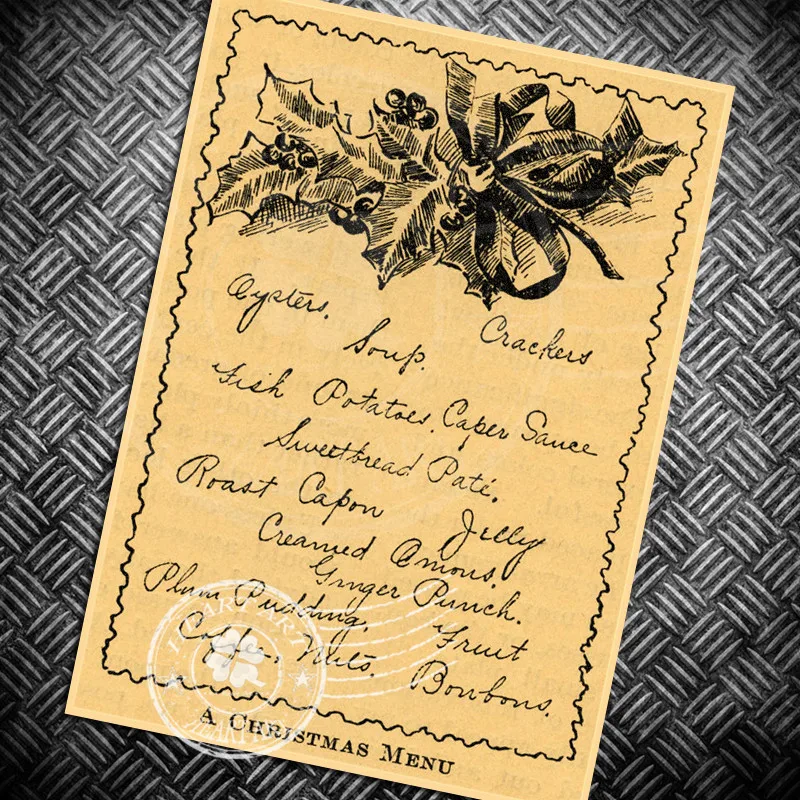 Oysters. Crackers
Soup.
Fish Potatoes. Caper Sauce
Sweetbread Paté.
Roast Capon Jelly
Creamed Onions.
Ginger Punch.
Plum Pudding. Fruit
Coffee. Nuts. Bonbons.
A Christmas Menu